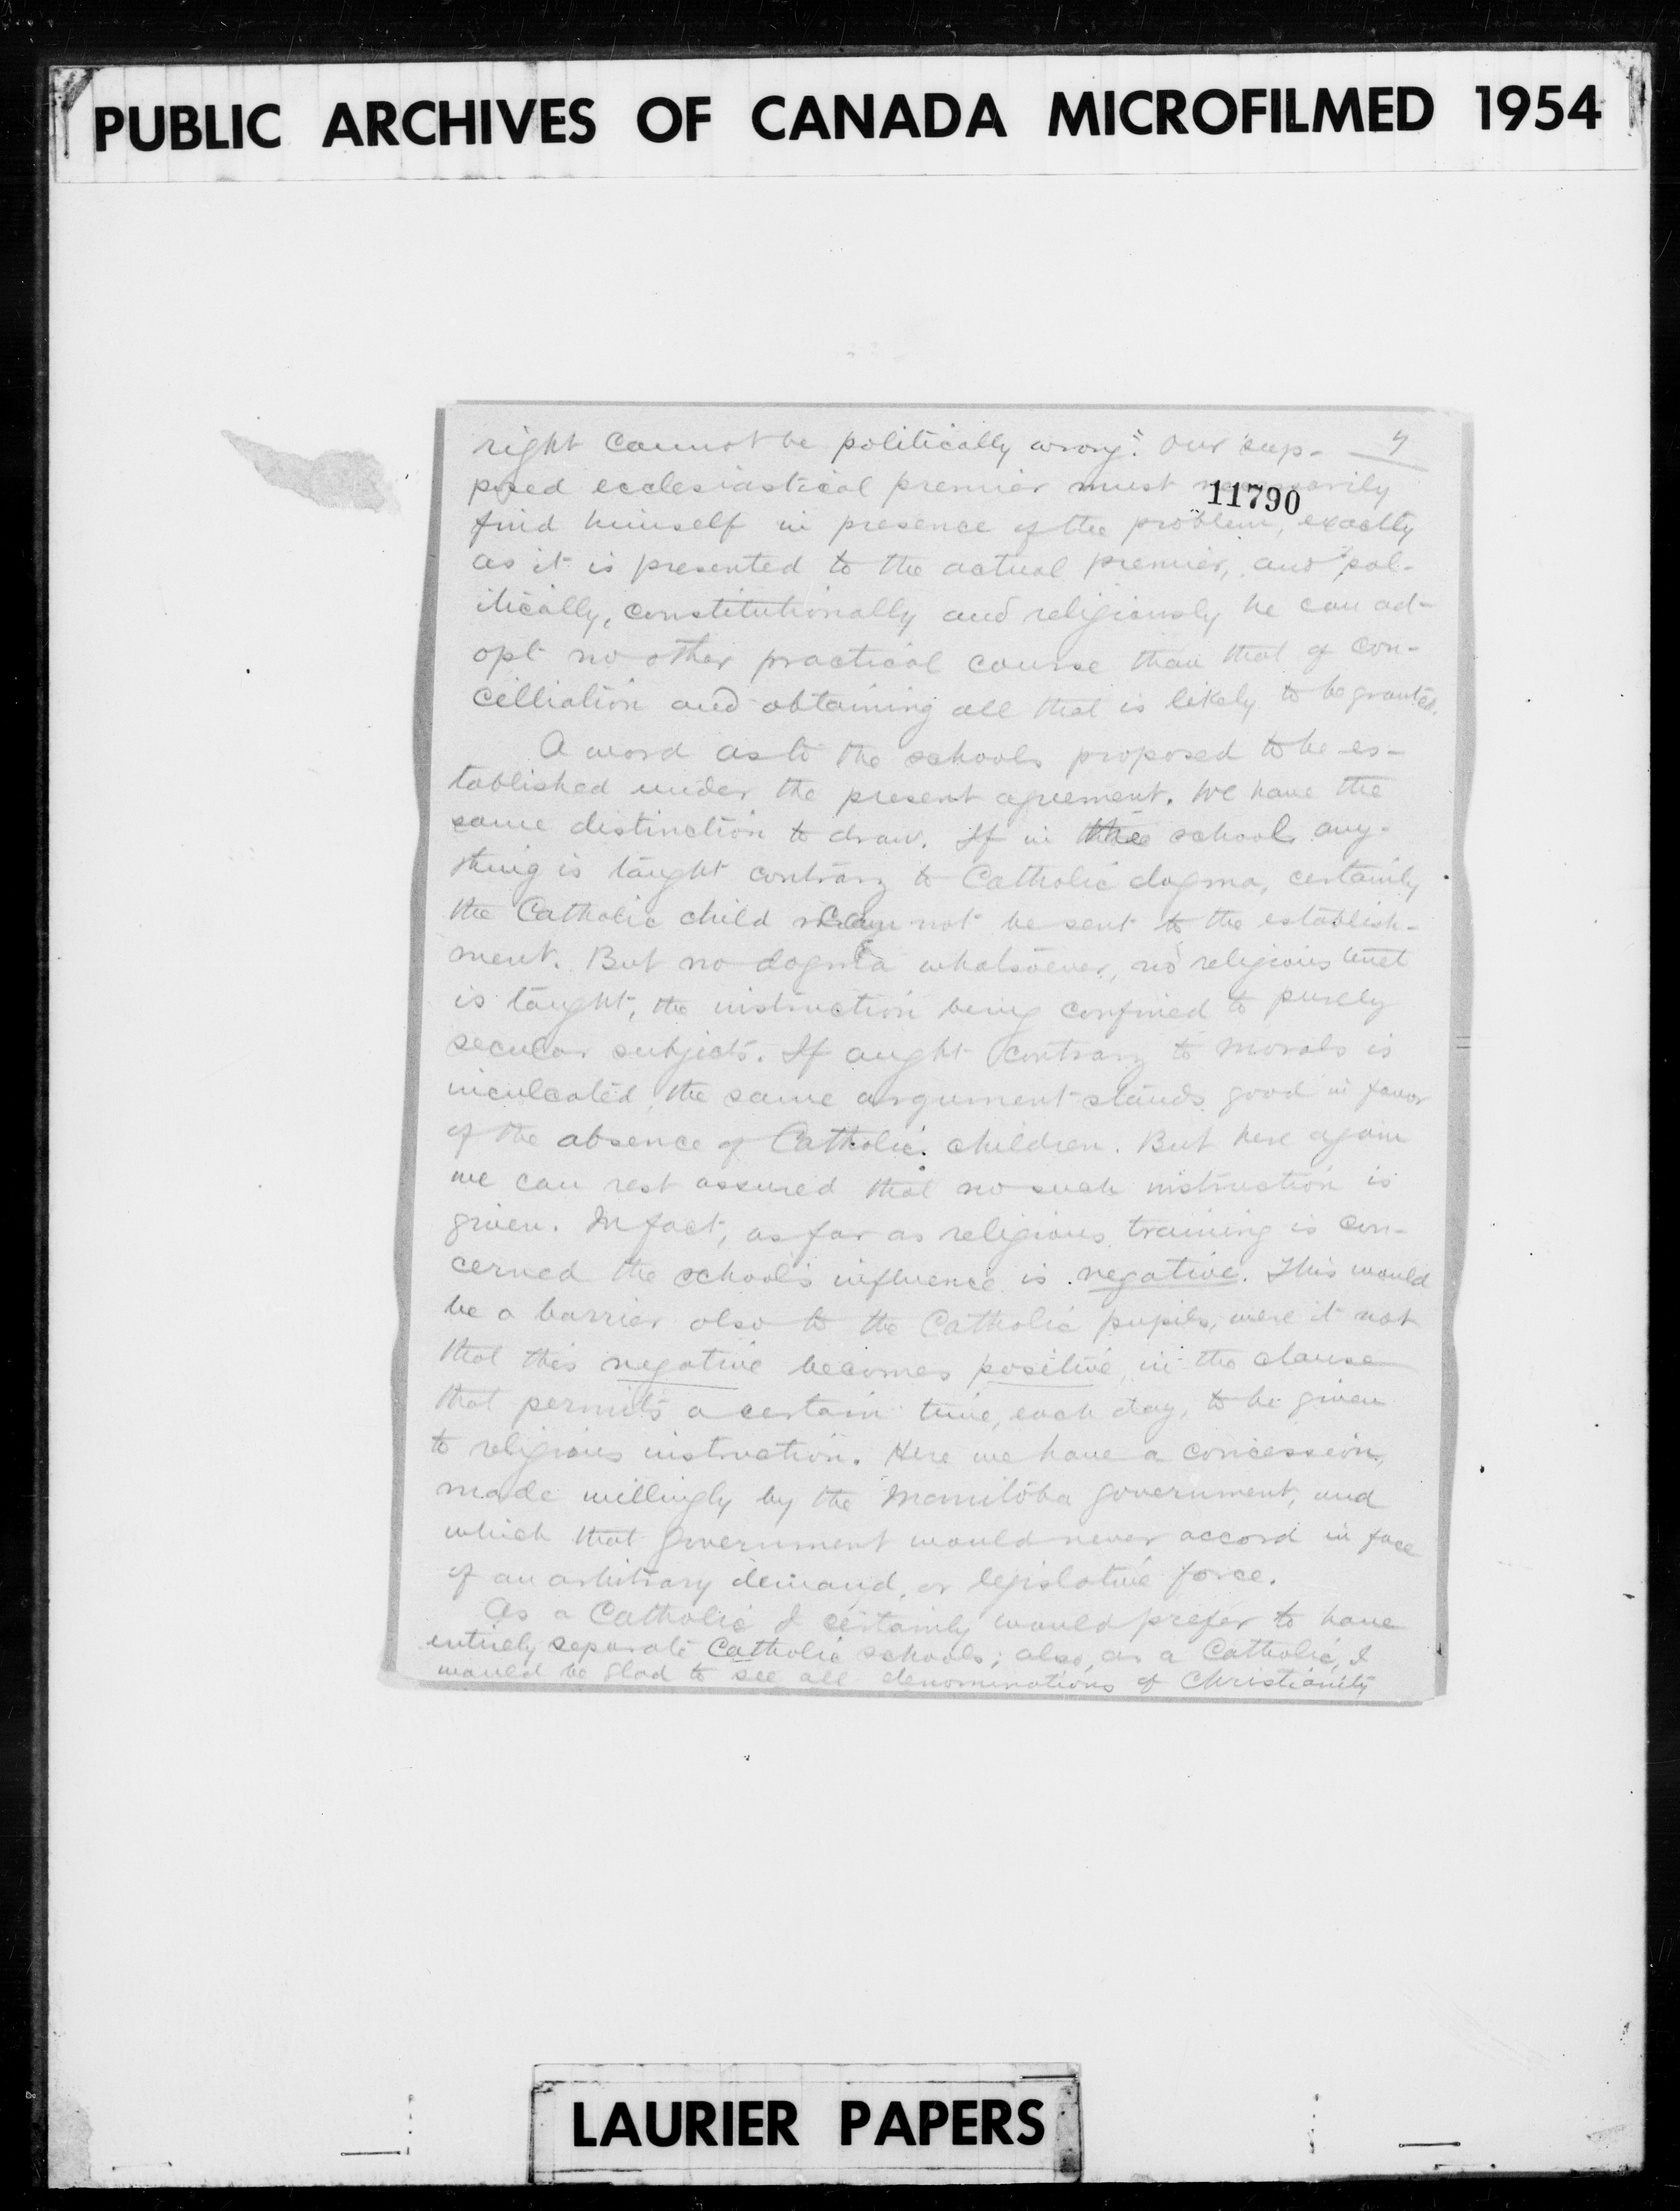 PUBLIC ARCHIVES OF CANADA MICROFILMED 1954
right cannot be politically wrong." Our sup-
posed ecclesiastical premier must necessarily
11790
find himself in presence of the problem, exactly
as it is presented to the actual premier, and pol-
itically, constitutionally and religiously he can ad-
opt no other practical course than that of con-
cilliation and obtaining all that is likely to be granted.
A word as to the schools proposed to be es-
tablished under the present agreement. We have the
same distinction to draw. If in the schools any-
thing is taught contrary to Catholic dogma, certainly
the Catholic child can not be sent to the establish-
ment. But no dogma whatsoever, no religious tenet
is taught, the instruction being confined to purely
secular subjects. If aught contrary to morals is
inculcated, the same argument stands good in favor
of the absence of Catholic children. But here again
we can rest assured that no such instruction is
given. In fact, as far as religious training is con-
cerned the school's influence is negative. This would
be a barrier also to the Catholic pupils, were it not
that this negative becomes positive, in the clause
that permits a certain time, each day, to be given
to religious instruction. Here we have a concession,
made willingly by the Manitoba government, and
which that government would never accord in face
of an arbitrary demand, or legislative force.
As a Catholic I certainly would prefer to have
entirely separate Catholic schools; also, as a Catholic, I
would be glad to see all denominations of Christianity
LAURIER PAPERS